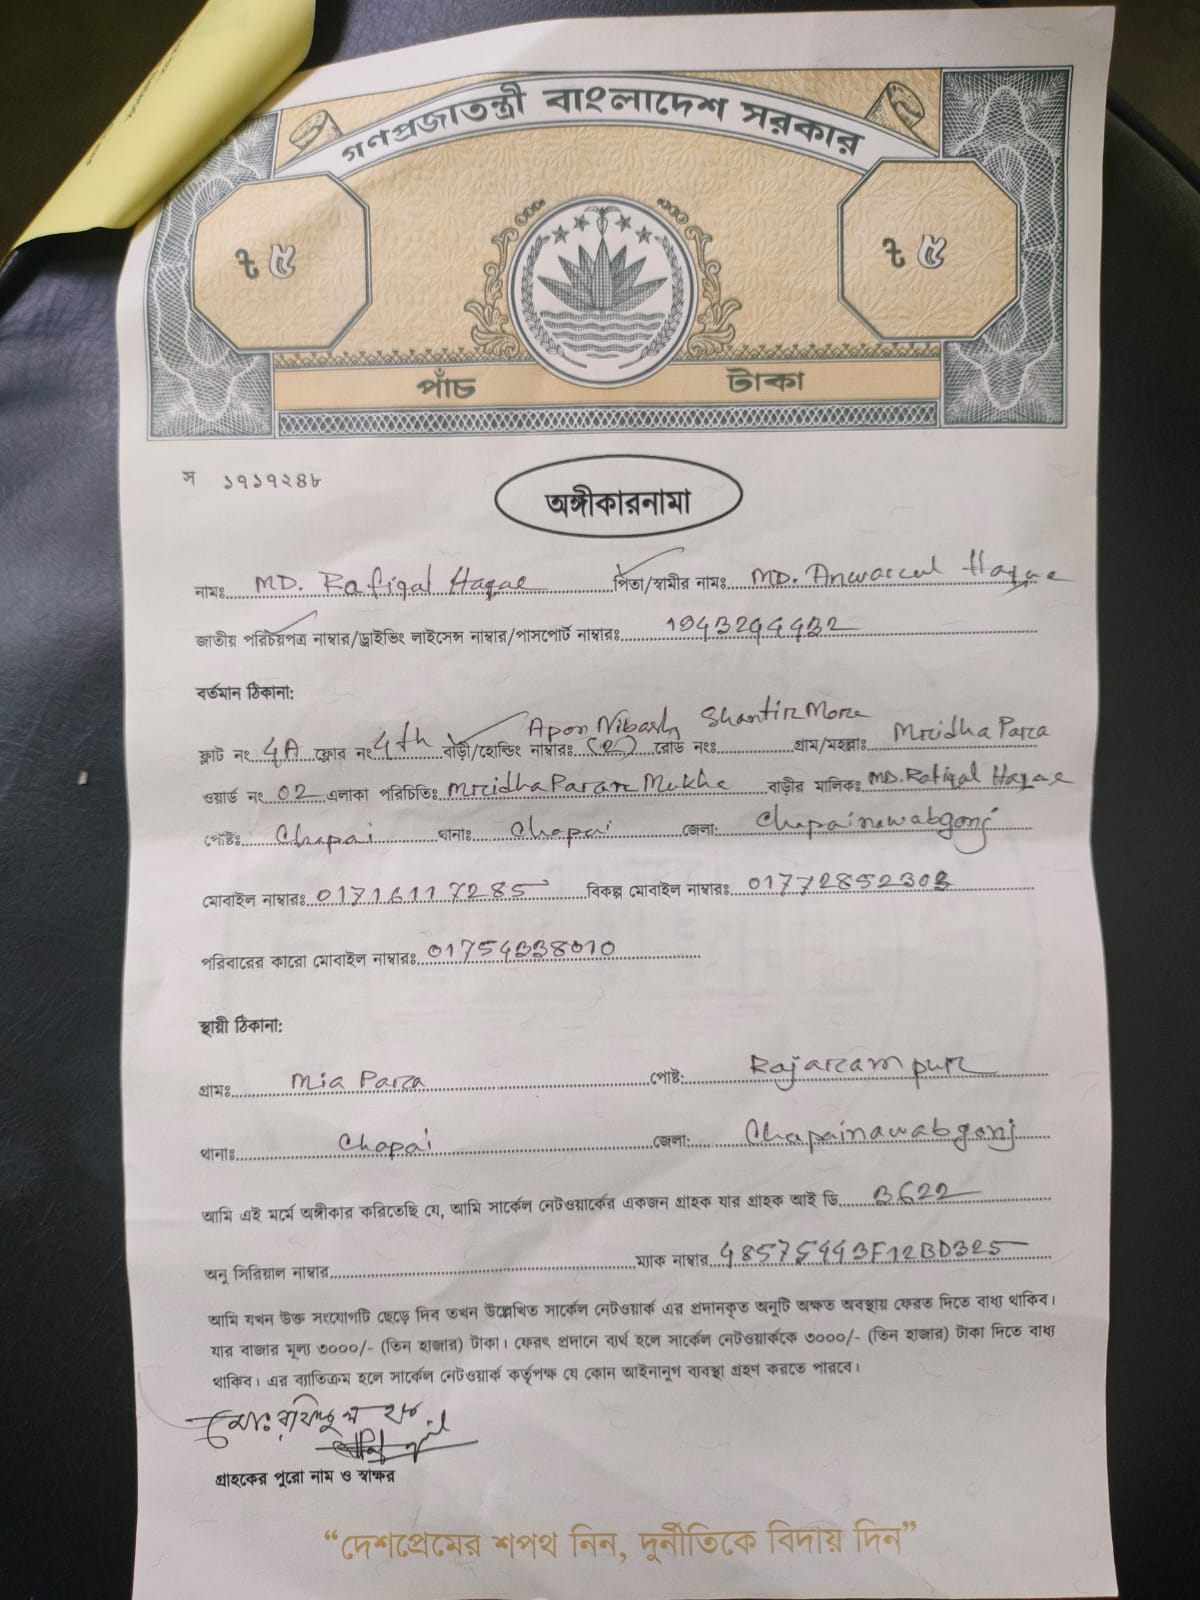 গণপ্রজাতন্ত্রী বাংলাদেশ সরকার
৳ ৫ ৳ ৫
পাঁচ টাকা
স ১৭১৭২৪৮
অঙ্গীকারনামা
নামঃ MD. Rafiqal Haque পিতা/স্বামীর নামঃ MD. Anwarul Haque
জাতীয় পরিচয়পত্র নাম্বার/ড্রাইভিং লাইসেন্স নাম্বার/পাসপোর্ট নাম্বারঃ
বর্তমান ঠিকানা:
Apon Nibash Shantir More
ফ্লাট নং 4A ফ্লোর নং 4th বাড়ী/হোল্ডিং নাম্বারঃ (2) রোড নংঃ গ্রাম/মহল্লাঃ Mridha Para
ওয়ার্ড নং 02 এলাকা পরিচিতিঃ Mridha Parar Mukhe বাড়ীর মালিকঃ MD. Rafiqal Haque
পোষ্টঃ Chapai থানাঃ Chapai জেলা: Chapainawabgonj
মোবাইল নাম্বারঃ 01716117285 বিকল্প মোবাইল নাম্বারঃ
পরিবারের কারো মোবাইল নাম্বারঃ
স্থায়ী ঠিকানা:
গ্রামঃ Mia Para পোষ্ট: Rajarampur
থানাঃ Chapai জেলা: Chapainawabgonj
আমি এই মর্মে অঙ্গীকার করিতেছি যে, আমি সার্কেল নেটওয়ার্কের একজন গ্রাহক যার গ্রাহক আই ডি 3622
অনু সিরিয়াল নাম্বার ম্যাক নাম্বার
আমি যখন উক্ত সংযোগটি ছেড়ে দিব তখন উল্লেখিত সার্কেল নেটওয়ার্ক এর প্রদানকৃত অনুটি অক্ষত অবস্থায় ফেরত দিতে বাধ্য থাকিব।
যার বাজার মূল্য ৩০০০/- (তিন হাজার) টাকা। ফেরৎ প্রদানে ব্যর্থ হলে সার্কেল নেটওয়ার্ককে ৩০০০/- (তিন হাজার) টাকা দিতে বাধ্য
থাকিব। এর ব্যতিক্রম হলে সার্কেল নেটওয়ার্ক কর্তৃপক্ষ যে কোন আইনানুগ ব্যবস্থা গ্রহণ করতে পারবে।
মোঃ রফিকুল হক
গ্রাহকের পুরো নাম ও স্বাক্ষর
“দেশপ্রেমের শপথ নিন, দুর্নীতিকে বিদায় দিন”